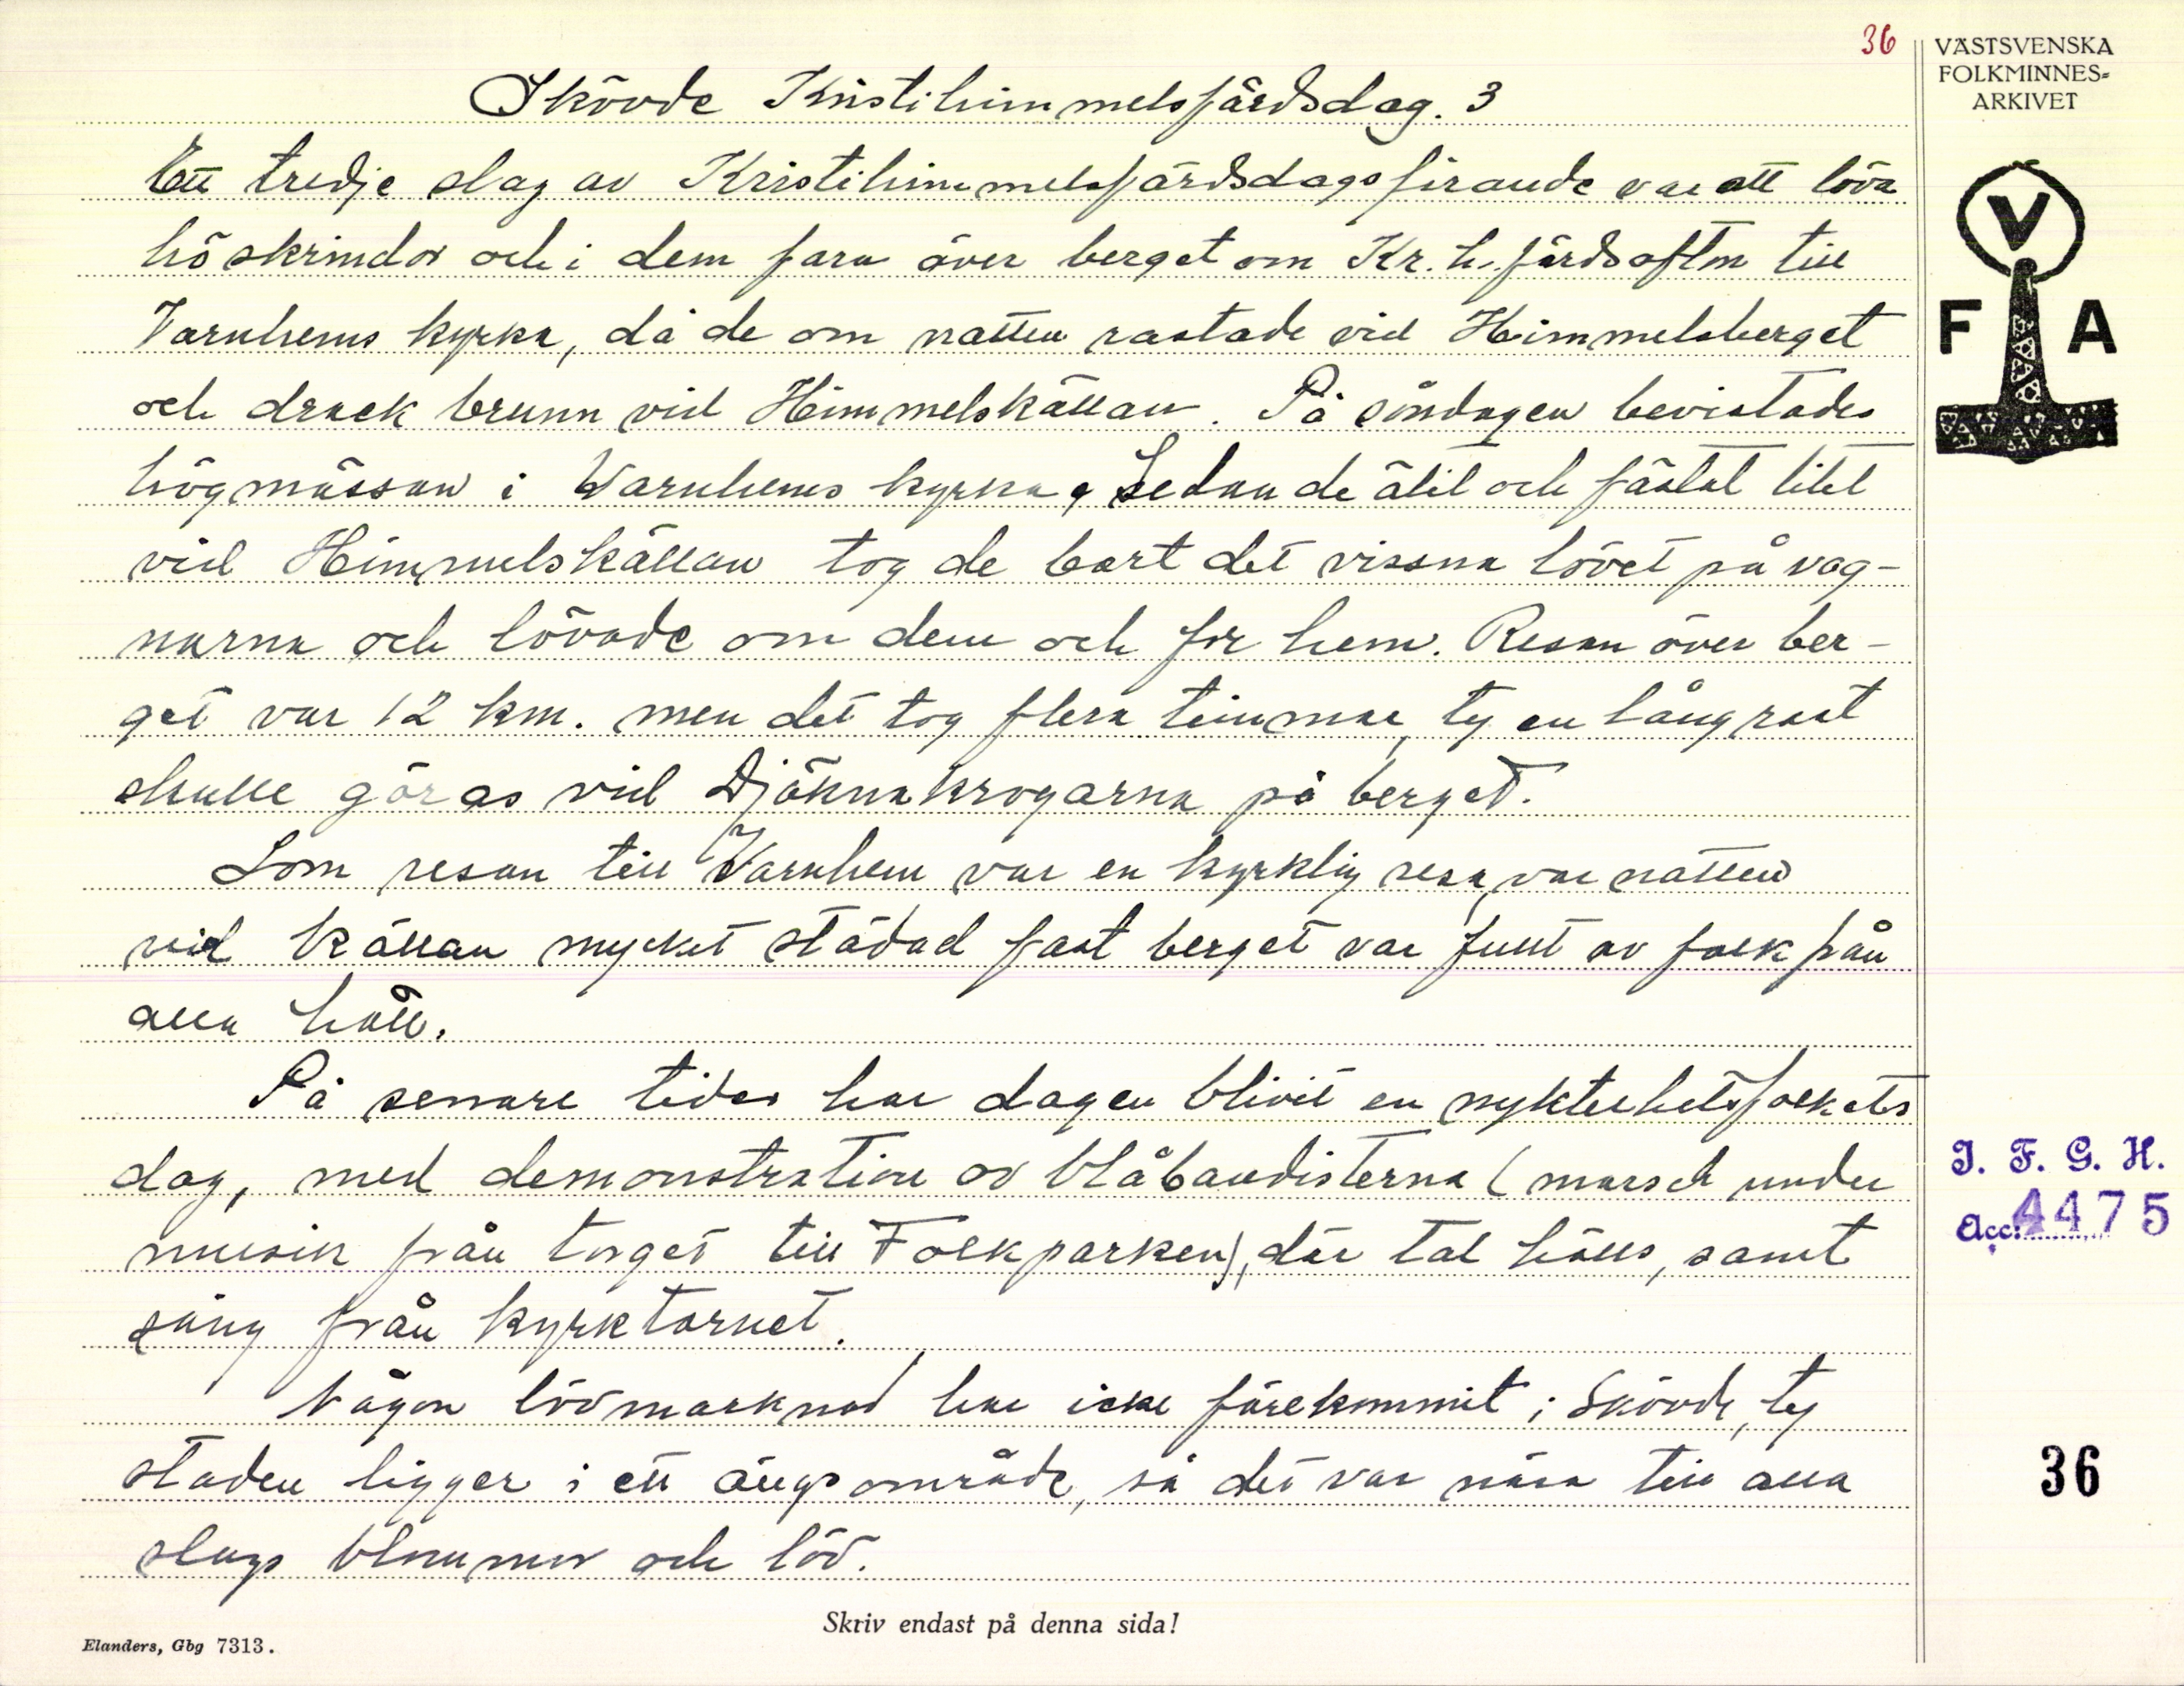 36
VÄSTSVENSKA
FOLKMINNES=
ARKIVET
Skövde Kristihimmelsfärdsdag. 3
Ett tredje slag av Kristihimmelsfärdsdagsfirande var att löva
höskrindor och i dem fara över berget om Kr. h. färdsaftm till
Varnhems kyrka, då de om natten rastade vid Himmelsberget
och drack brunn vid Himmelskällan. På söndagen bevistades
högmässan i Varnhems kyrka, Sedan de ätit och fästat litet
vid Himmelskällan tog de bort det vissna lövet på vag-
narna och lövade om dem och for hem. Resan över ber-
get var 12 km. men det tog flera timmar, ty en lång rast
skulle göras vid Djäknakrogarna på berget.
Som resan till Varnhem var en kyrklig resa, var natten
vid källan mycket städad fast berget var fullt av folk från
alla håll.
På senare tider har dagen blivit en nykterhetsfolkets
dag, med demonstration av blåbandisterna (marsch under
musik från torget till Folkparken), där tal hålls, samt
sång från kyrktornet.
Någon lövmarknad har icke förekommit i Skövde, ty
staden ligger i ett ängsområde, så det var nära till alla
slags blommor och löv.
V
F A
I. F. G. H.
Acc: 4475
36
Skriv endast på denna sida!
Elanders, Gbg 7313.